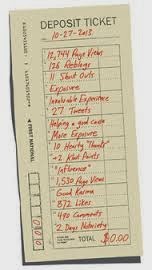 DEPOSIT TICKET
10-27-2013
12,744 Page Views
126 Reblogs
11 Shout Outs
Exposure
Invaluable Experience
27 Tweets
Helping a good cause
More Exposure
10 Hearty Thanks
+2 Klout Points
"Influence"
1,530 Page Views
Good Karma
872 Likes
490 Comments
2 Days Notoriety
TOTAL $0.00
FIRST NATIONAL